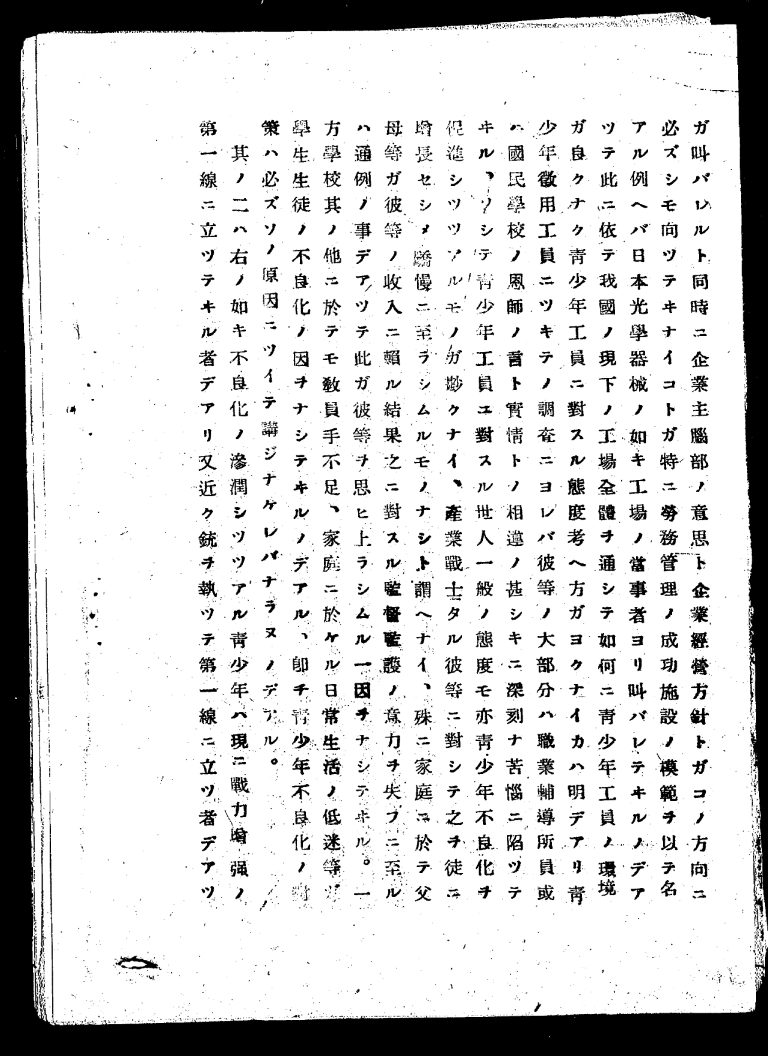 ガ叫バレルト同時ニ企業主腦部ノ意思ト企業經營方針トガコノ方向ニ
必ズシモ向ツテヰナイコトガ特ニ勞務管理ノ成功施設ノ模範ヲ以テ名
アル例ヘバ日本光學器械ノ如キ工場ノ當事者ヨリ叫バレテヰルノデア
ツテ此ニ依テ我國ノ現下ノ工場全體ヲ通シテ如何ニ靑少年工員ノ環境
ガ良クナク靑少年工員ニ對スル態度考ヘ方ガヨクナイカハ明デアリ靑
少年徵用工員ニツキテノ調査ニヨレバ彼等ノ大部分ハ職業輔導所員或
ハ國民學校ノ恩師ノ言ト實情トノ相違ノ甚シキニ深刻ナ苦惱ニ陷ツテ
ヰル、ソシテ靑少年工員ニ對スル世人一般ノ態度モ亦靑少年不良化ヲ
促進シツツアルモノガ尠クナイ、產業戰士タル彼等ニ對シテ之ヲ徒ニ
增長セシメ驕慢ニ至ラシムルモノナシト謂ヘナイ、殊ニ家庭ニ於テ父
母等ガ彼等ノ收入ニ賴ル結果之ニ對スル監督監護ノ意力ヲ失フニ至ル
ハ通例ノ事デアツテ此ガ彼等ヲ思ヒ上ラシムル一因ヲナシテヰル。一
方學校其ノ他ニ於テモ敎員手不足、家庭ニ於ケル日常生活ノ低迷等ガ
學生生徒ノ不良化ノ因ヲナシテヰルノデアル、卽チ靑少年不良化ノ對
策ハ必ズソノ原因ニツイテ講ジナケレバナラヌノデアル。
其ノ二ハ右ノ如キ不良化ノ滲潤シツツアル靑少年ハ現ニ戰力增强ノ
第一線ニ立ツテヰル者デアリ又近ク銃ヲ執ツテ第一線ニ立ツ者デアツ